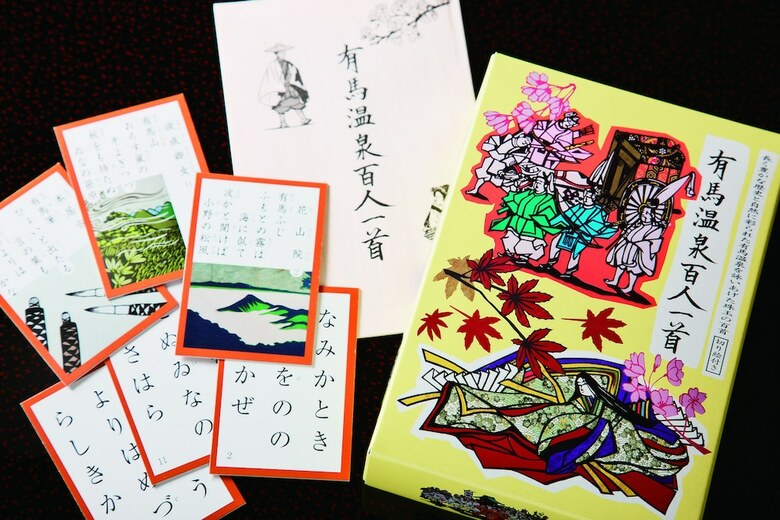 有馬温泉百人一首
長く豊かな歴史と自然に彩られた有馬温泉を詠いあげた珠玉の百首
切り絵付き
有馬温泉百人一首
俊成卿女
有馬山
おろす嵐の
花山院
有馬ふじ
ふもとの霧は
海に似て
波かと聞けば
小野の松風
なみかとき
をのの
かぜ
2
ぬゐなの
さはら
11
らしきか